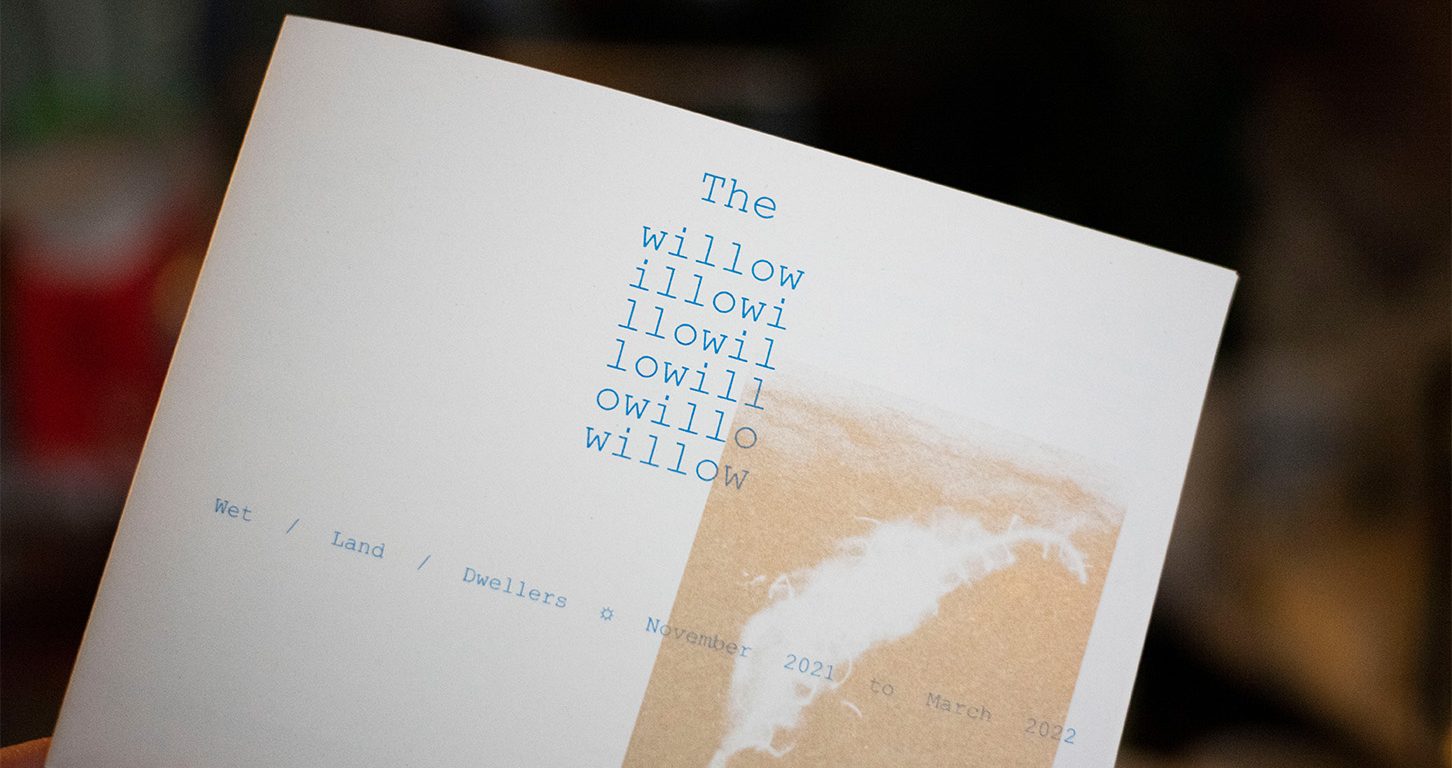 The
willow
illowi
llowil
lowill
owillo
willow
Wet / Land / Dwellers ☼ November 2021 to March 2022